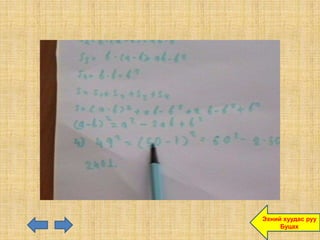 S₃= b·(a-b)= ab-b²
S₄= b·b=b²
S=S₁+S₂+S₃+S₄
S=(a-b)²+ab-b²+a b-b²+b²
(a-b)²=a²-2ab+b²
49²=(50-1)²=50²-2·50
2401.
Эхний хуудас руу
Буцах